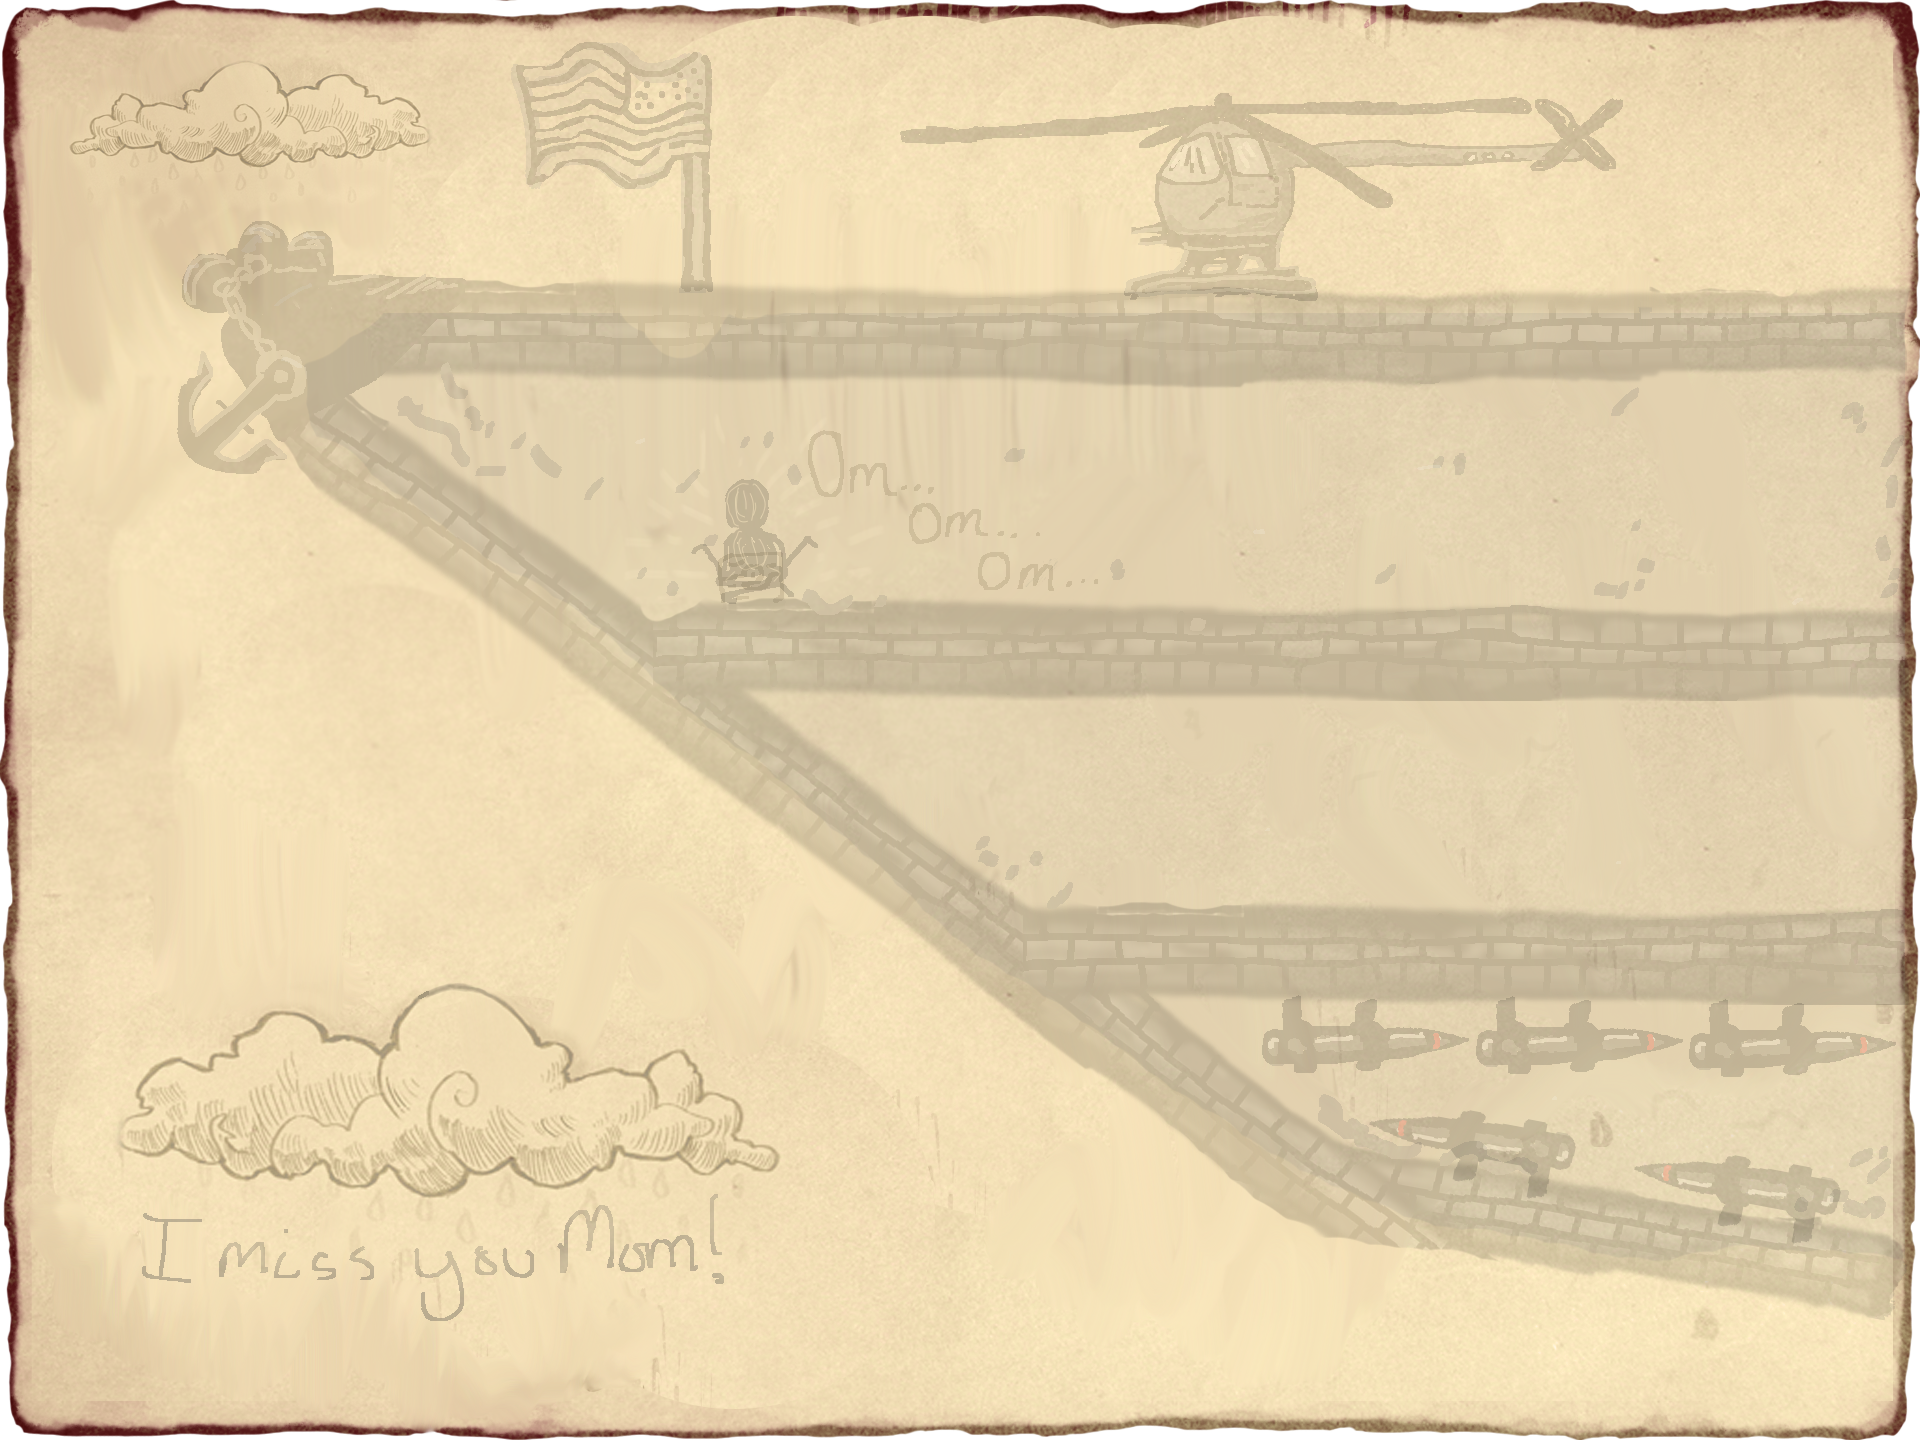 Om...
Om...
Om...
I miss you Mom!